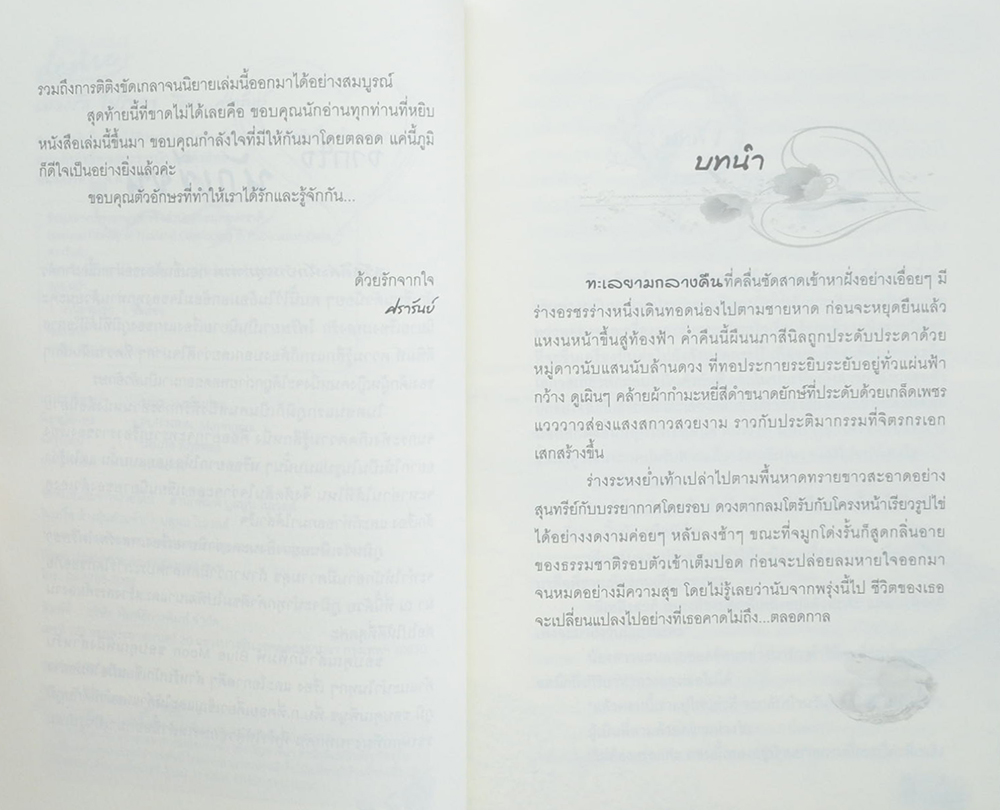 รวมถึงการติติงขัดเกลาจนนิยายเล่มนี้ออกมาได้อย่างสมบูรณ์
สุดท้ายนี้ที่ขาดไม่ได้เลยคือ ขอบคุณนักอ่านทุกท่านที่หยิบ
หนังสือเล่มนี้ขึ้นมา ขอบคุณกำลังใจที่มีให้กันมาโดยตลอด แค่นี้ภูมิ
ก็ดีใจเป็นอย่างยิ่งแล้วค่ะ
ขอบคุณตัวอักษรที่ทำให้เราได้รักและรู้จักกัน...
ด้วยรักจากใจ
ศรารันย์
บทนำ
ทะเลยามกลางคืนที่คลื่นซัดสาดเข้าหาฝั่งอย่างเอื่อยๆ มี
ร่างอรชรร่างหนึ่งเดินทอดน่องไปตามชายหาด ก่อนจะหยุดยืนแล้ว
แหงนหน้าขึ้นสู่ท้องฟ้า ค่ำคืนนี้ผืนนภาสีนิลถูกประดับประดาด้วย
หมู่ดาวนับแสนนับล้านดวง ที่ทอประกายระยิบระยับอยู่ทั่วแผ่นฟ้า
กว้าง ดูเผินๆ คล้ายผ้ากำมะหยี่สีดำขนาดยักษ์ที่ประดับด้วยเกล็ดเพชร
แวววาวส่องแสงสกาวสวยงาม ราวกับประติมากรรมที่จิตรกรเอก
เสกสร้างขึ้น
ร่างระหงย่ำเท้าเปล่าไปตามพื้นหาดทรายขาวสะอาดอย่าง
สุนทรีย์กับบรรยากาศโดยรอบ ดวงตากลมโตรับกับโครงหน้าเรียวรูปไข่
ได้อย่างงดงามค่อยๆ หลับลงช้าๆ ขณะที่จมูกโด่งรั้นก็สูดกลิ่นอาย
ของธรรมชาติรอบตัวเข้าเต็มปอด ก่อนจะปล่อยลมหายใจออกมา
จนหมดอย่างมีความสุข โดยไม่รู้เลยว่านับจากพรุ่งนี้ไป ชีวิตของเธอ
จะเปลี่ยนแปลงไปอย่างที่เธอคาดไม่ถึง...ตลอดกาล